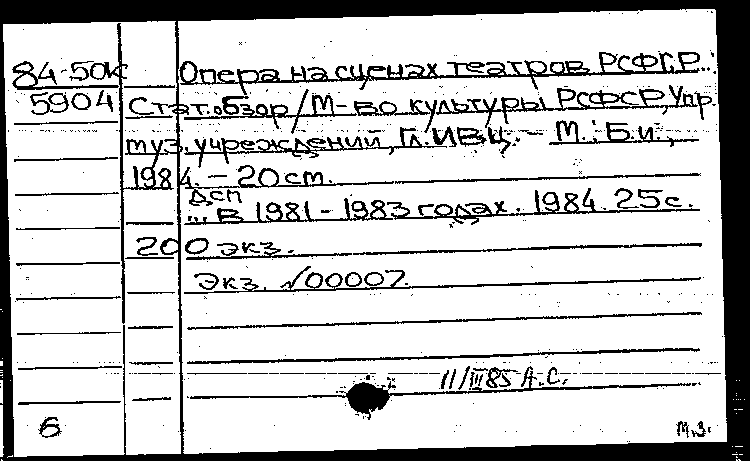 84-50к Опера на сценах театров РСФСР..:
5904 Стат. обзор/М-во культуры РСФСР, Упр.
муз. учреждений, Гл. ИВЦ. - М.: Б.и.,
1984. - 20 cm.
ДСП
... В 1981-1983 годах. 1984. 25 с.
200 экз.
Экз. №00007.
11/III 85 А.С.
6 М.З.